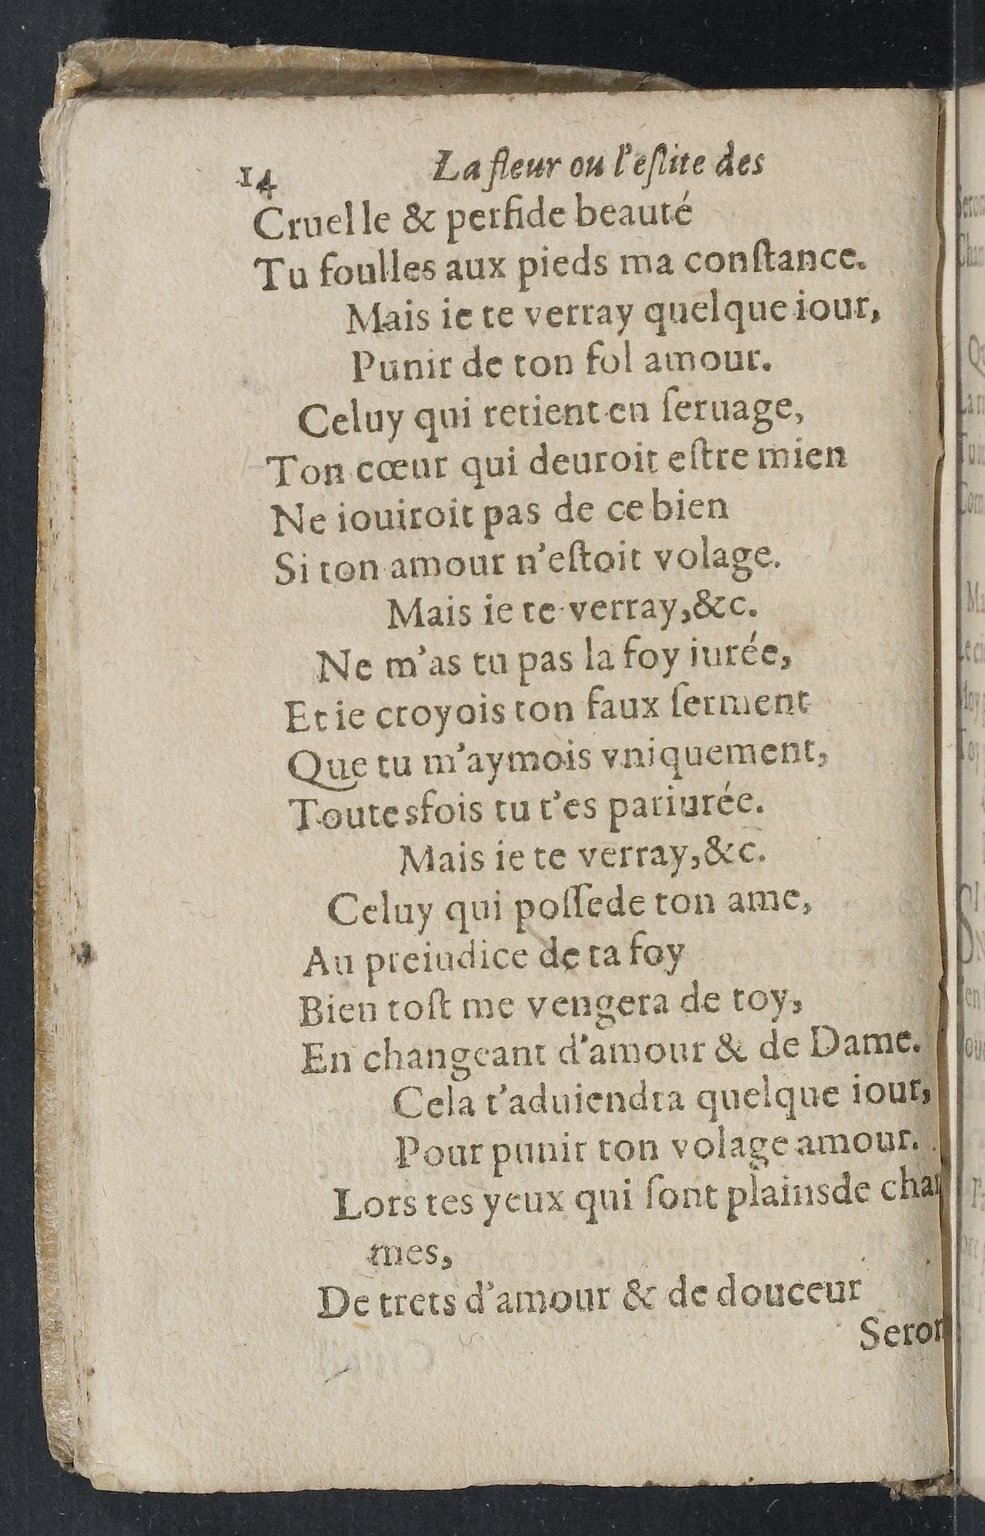 14 La fleur ou l'eſlite des
Cruelle & perfide beauté
Tu foulles aux pieds ma conſtance.
Mais ie te verray quelque iour,
Punir de ton fol amour.
Celuy qui retient en ſeruage,
Ton cœur qui deuroit eſtre mien
Ne iouiroit pas de ce bien
Si ton amour n'eſtoit volage.
Mais ie te verray, &c.
Ne m'as tu pas la foy iurée,
Et ie croyois ton faux ſerment
Que tu m'aymois vniquement,
Toutesfois tu t'es pariurée.
Mais ie te verray, &c.
Celuy qui poſſede ton ame,
Au preiudice de ta foy
Bien toſt me vengera de toy,
En changeant d'amour & de Dame.
Cela t'aduiendra quelque iour,
Pour punir ton volage amour.
Lors tes yeux qui ſont plains de char
mes,
De trets d'amour & de douceur
Seron